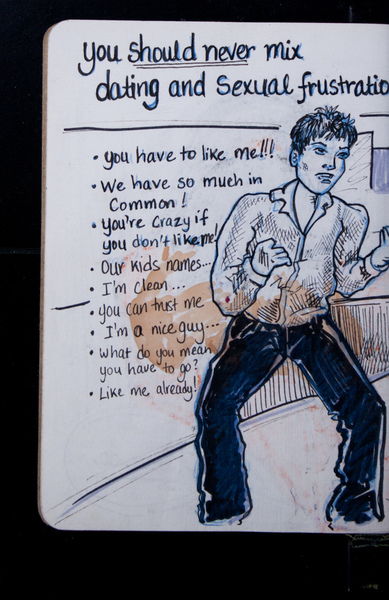 you should never mix
dating and Sexual frustratio
• you have to like me!!!
• We have so much in
Common!
• You're Crazy if
you don't like me!
• Our kids names...
• I'm clean...
• you can trust me
• I'm a nice guy...
• What do you mean
you have to go?
• Like me already!